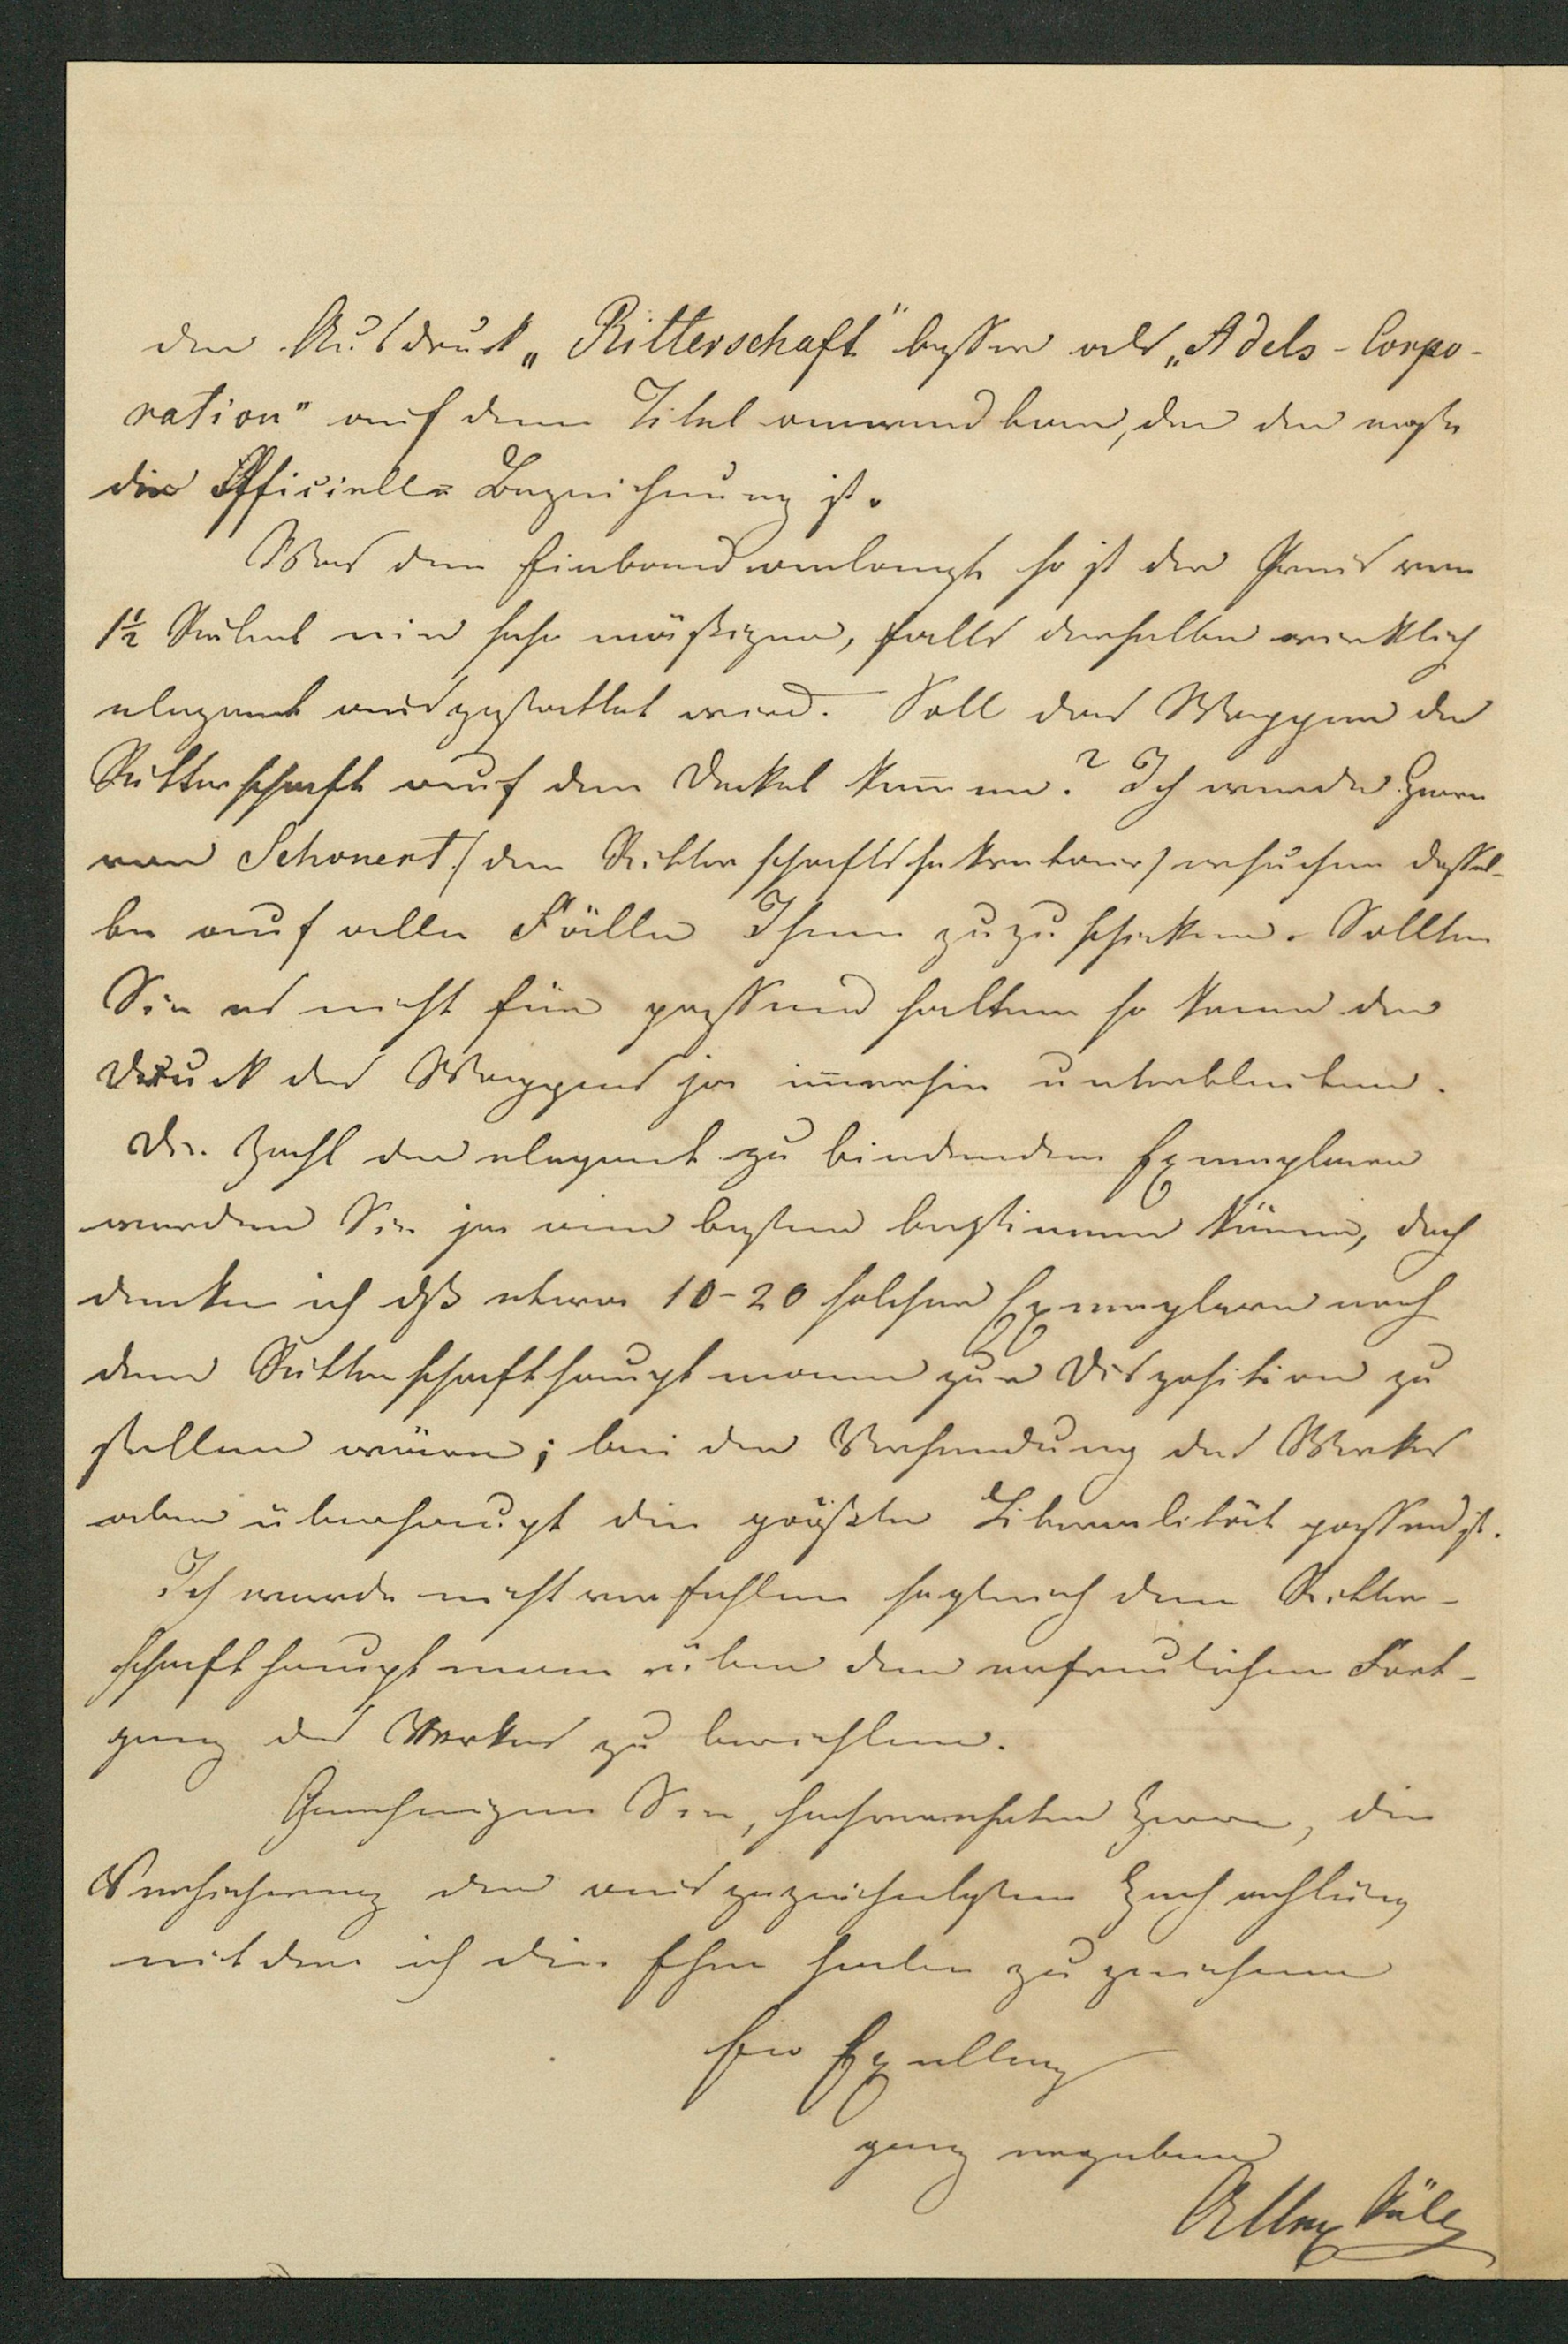 der Ausdruck „Ritterschaft" besser als „Adels-Corpo-
ration" auf dem Titel anwendbar, da der erste
die Officielle Bezeichnung ist.
Was den Einband anlangt so ist der Preis von
1½ Rubel ein sehr mäßiger, falls derselbe wirklich
elegant ausgestattet wird. Soll das Wappen der
Ritterschaft auf den Deckel kom̄en? Ich werde Herrn
von Schonert /:dem Ritterschaftssekretair/ ersuchen dassel-
be auf alle Fälle Ihnen zuzuschicken. Sollten
Sie es nicht für passend halten so kann der
Druck des Wappens ja im̄erhin unterbleiben.
Die Zahl der elegant zu bindenden Exemplaren
werden Sie ja am besten bestimmen können, doch
denke ich dß etwa 10-20 solcher Exemplare noch
dem Ritterschafthauptmann zur Disposition zu
stellen wären; bei der Versendung des Werkes
aber überhaupt die größte Liberalität passend ist.
Ich werde nicht verfehlen sogleich dem Ritter-
schafthauptmann über den erfreulichen Fort-
gang des Werkes zu berichten.
Genehmigen Sie, hochverehrter Herr, die
Versicherung der ausgezeichnetsten Hochachtung
mit der ich die Ehre habe zu zeichnen
Ew Exellenz
ganz ergebener